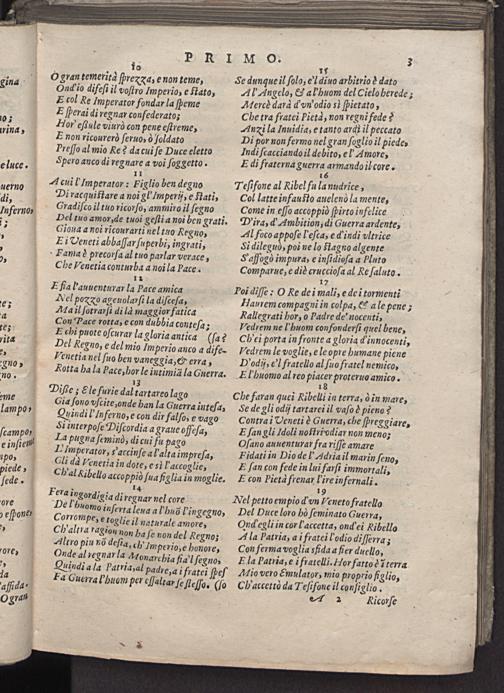 PRIMO. 3
10
O gran temerità sprezza, e non teme,
Ond'io difesi il vostro Imperio, e stato,
E col Re Imperator fondar la speme
E sperai di regnar confederato;
Hor' esule viurò con pene estreme,
E non ricourerò seruo, ò soldato
Presso al mio Re? da cui se Duce eletto
Spero anco di regnare a voi soggetto.
11
A cui l'Imperator: Figlio ben degno
Di racquistare a noi gl'Imperij, e stati,
Gradisco il tuo ricorso, ammiro il segno
Del tuo amor, de tuoi gesti a noi ben grati.
Gioua a noi ricourarti nel tuo Regno,
E i Veneti abbassar superbi, ingrati,
Fama è precorsa al tuo parlar verace,
Che Venetia conturba a noi la Pace.
12
E sia l'auuenturar la Pace amica
Nel pozzo ageuolarsi la discesa,
Ma il sotrarsi di là maggior fatica
Con Pace rotta, e con dubbia contesa;
E chi puote oscurar la gloria antica (sa?
Del Regno, e del mio Imperio anco a dife-
Venetia nel suo ben vaneggia, & erra,
Rotta ha la Pace, hor le intimiã la Guerra.
13
Disse; E le furie dal tartareo lago
Gia sono vscite, onde han la Guerra intesa,
Quindi l'Inferno, e con dir falso, e vago
Si interpose Discordia a graue offesa,
La pugna seminò, di cui fu pago
L'Imperator, s'accinse a l'alta impresa,
Gli dà Venetia in dote, e sì l'accoglie,
Ch'al Ribello accoppiò sua figlia in moglie.
14
Fera ingordigia di regnar nel core
De l'huomo inserra leua a l'huõ l'ingegno,
Corrompe, e toglie il naturale amore,
Ch'altra ragion non ha se non del Regno;
Altro piu nõ desia, ch'Imperio, e honore,
Onde al regnar la Monarchia fia'l segno,
Quindi a la Patria, al padre, a i fratei spes
Fa Guerra l'huom per essaltar se stesso. (so
15
Se dunque il solo, e'l diuo arbitrio è dato
A l'Angelo, & a l'huom del Cielo herede;
Mercè darà d'vn'odio sì spietato,
Che tra fratei Pietà, non regni fede?
Anzi la Inuidia, e tanto ardì il peccato
Di por non fermo nel gran soglio il piede,
Indi scacciando il debito, e l'Amore,
E di fraterna guerra armando il core.
16
Tesifone al Ribel fu la nudrice,
Col latte infausto auelenò la mente,
Come in esso accoppiò spirto infelice
D'ira, d'Ambition, di Guerra ardente,
Al foco appose l'esca, e d'indi vltrice
Si dileguò, poi ne lo stagno algente
S'affogò impura, e insidiosa a Pluto
Comparue, e diè crucciosa al Re saluto.
17
Poi disse: O Re de i mali, e de i tormenti
Haurem compagni in colpa, & a le pene;
Rallegrati hor, o Padre de' nocenti,
Vedrem ne l'huom confondersi quel bene,
Ch'ei porta in fronte a gloria d'innocenti,
Vedrem le voglie, e le opre humane piene
D'odij, e'l fratello al suo fratel nemico,
E l'huomo al reo piacer proteruo amico.
18
Che faran quei Ribelli in terra, ò in mare,
Se de gli odij tartarei il vaso è pieno?
Contra i Veneti è Guerra, che spreggiare,
E san gli Idoli nostri odiar non meno;
Osano auuenturar fra risse amare
Fidati in Dio de l'Adria il marin seno,
E san con fede in lui farsi immortali,
E con Pietà frenar l'ire infernali.
19
Nel petto empio d'vn Veneto fratello
Del Duce loro hò seminato Guerra,
Ond'egli in cor l'accetta, ond'ei Ribello
A la Patria, a i fratei l'odio disserra;
Con ferma voglia sfida a fier duello,
E la Patria, e i fratelli. Hor fatto è ĩ terra
Mio vero Emulator, mio proprio figlio,
Ch'accettò da Tesifone il consiglio.
A 2 Ricorse